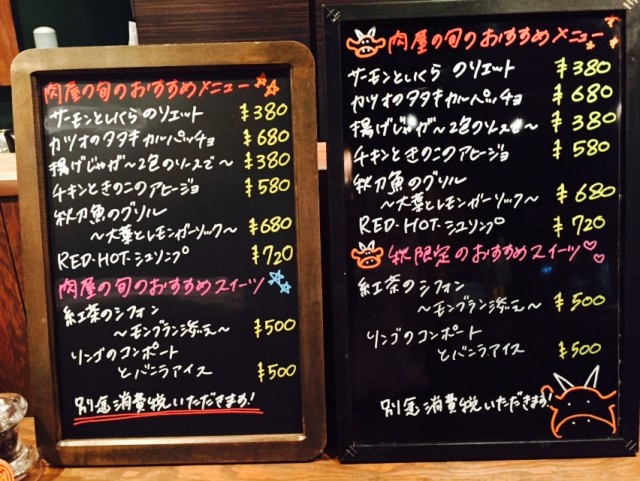 肉屋の旬のおすすめメニュー
サーモンといくらのリエット ¥380
カツオのタタキカルパッチョ ¥680
揚げじゃが～2色のソースで～ ¥380
チキンときのこのアヒージョ ¥580
秋刀魚のグリル
～大葉とレモンガーリック～ ¥680
RED-HOT-シュリンプ ¥720
肉屋の旬のおすすめスイーツ
紅茶のシフォン
～モンブラン添え～ ¥500
リンゴのコンポート
とバニラアイス ¥500
別途消費税いただきます!
肉屋の旬のおすすめメニュー
サーモンといくらのリエット ¥380
カツオのタタキカルパッチョ ¥680
揚げじゃが～2色のソースで～ ¥380
チキンときのこのアヒージョ ¥580
秋刀魚のグリル
～大葉とレモンガーリック～ ¥680
RED-HOT-シュリンプ ¥720
秋限定のおすすめスイーツ♡
紅茶のシフォン
～モンブラン添え～ ¥500
リンゴのコンポート
とバニラアイス ¥500
別途消費税いただきます!